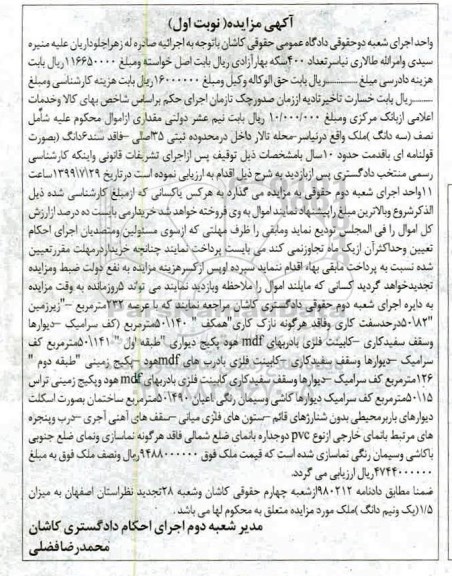 آگهی مزایده( نوبت اول)
واحد اجرای شعبه دوحقوقی دادگاه عمومی حقوقی کاشان باتوجه به اجرائیه صادره له زهراجلوداریان علیه منیره
سیدی وامرالله طالاری نیاسرتعداد ۴۰۰سکه بهارآزادی ریال بابت اصل خواسته ومبلغ ۱۱۶۶۵۰۰۰۰ریال بابت
هزینه دادرسی مبلغ ........ریال بابت حق الوکاله وکیل ومبلغ ۱۶۰۰۰۰۰۰ریال بابت هزینه کارشناسی ومبلغ
........ریال بابت خسارت تاخیرتادیه اززمان صدورچک تازمان اجرای حکم براساس شاخص بهای کالا وخدمات
اعلامی ازبانک مرکزی ومبلغ ۱۰/۰۰۰/۰۰۰ ریال بابت نیم عشر دولتی مقداری ازاموال محکوم علیه شامل
نصف (سه دانگ )ملک واقع درنیاسر-محله تالار داخل درمحدوده ثبتی ۳۵اصلی –فاقد سند۶دانگ (بصورت
قولنامه ای باقدمت حدود ۱۰سال بامشخصات ذیل توقیف پس ازاجرای تشریفات قانونی واینکه کارشناسی
رسمی منتخب دادگستری پس ازبازدید به شرح ذیل اقدام به ارزیابی نموده است درتاریخ ۱۳۹۹/۷/۲۹ساعت
۱۱واحد اجرای شعبه دوم حقوقی به مزایده می گذارد به هرکس یاکسانی که ازمبلغ کارشناسی شده ذیل
الذکرشروع وبالاترین مبلغ راپیشنهاد نمایند اموال به وی فروخته خواهد شد خریدارمی بایست ده درصد ازارزش
کل اموال را فی المجلس تودیع نماید ومابقی را ظرف مهلتی که ازسوی مسئولین ومتصدیان اجرای احکام
تعیین وحداکثرآن ازیک ماه تجاوزنمی کند می بایست پرداخت نمایند چنانچه خریداردرمهلت مقررتعیین
شده نسبت به پرداخت مابقی بهاء اقدام ننماید سپرده اوپس ازکسرهزینه مزایده به نفع دولت ضبط ومزایده
تجدیدخواهد گردید کسانی که مایلند اموال را ملاحظه وبازدید نمایند می تواند ۵روزمانده به وقت مزایده
به دایره اجرای شعبه دوم حقوقی دادگستری کاشان مراجعه نمایند که با عرصه ۲۳۲مترمربع –"زیرزمین
"۵۰/۸۲درحدسفت کاری وفاقد هرگونه نازک کاری"همکف "۵۰/۱۴۰مترمربع (کف سرامیک –دیوارها
وسقف سفیدکاری –کابینت فلزی بادربهای mdf هود پکیج دیواری "طبقه اول "۵۰/۱۴۱مترمربع کف
سرامیک –دیوارها وسقف سفیدکاری –کابینت فلزی بادرب های mdfهود –پکیج زمینی "طبقه دوم "
۱۲۶مترمربع کف سرامیک –دیوارها وسقف سفیدکاری کابینت فلزی بادربهای mdf هود وپکیج زمینی تراس
۵۰/۱۵مترمربع کف سرامیک دیوارها کاشی وسیمان رنگی اعیان ۵۰/۴۹۰مترمربع ساختمان بصورت اسکلت
دیوارهای باربرمحیطی بدون شنارژهای قائم –ستون های فلزی میانی –سقف های آهنی آجری –درب وپنجره
های مرتبط بانمای خارجی ازنوع pvc دوجداره بانمای ضلع شمالی فاقد هرگونه نماسازی ونمای ضلع جنوبی
باکاشی وسیمان رنگی نماسازی شده است که قیمت ملک فوق ۹۴۸۸۰۰۰۰۰۰ریال ونصف ملک فوق به مبلغ
۴۷۴۴۰۰۰۰۰۰ریال ارزیابی می گردد.
ضمنا مطابق دادنامه ۹۸۰۲۱۲ازشعبه چهارم حقوقی کاشان وشعبه ۲۸تجدید نظراستان اصفهان به میزان
۱/۵(یک ونیم دانگ )ملک مورد مزایده متعلق به محکوم لها می باشد .
مدیر شعبه دوم اجرای احکام دادگستری کاشان
محمدرضافضلی